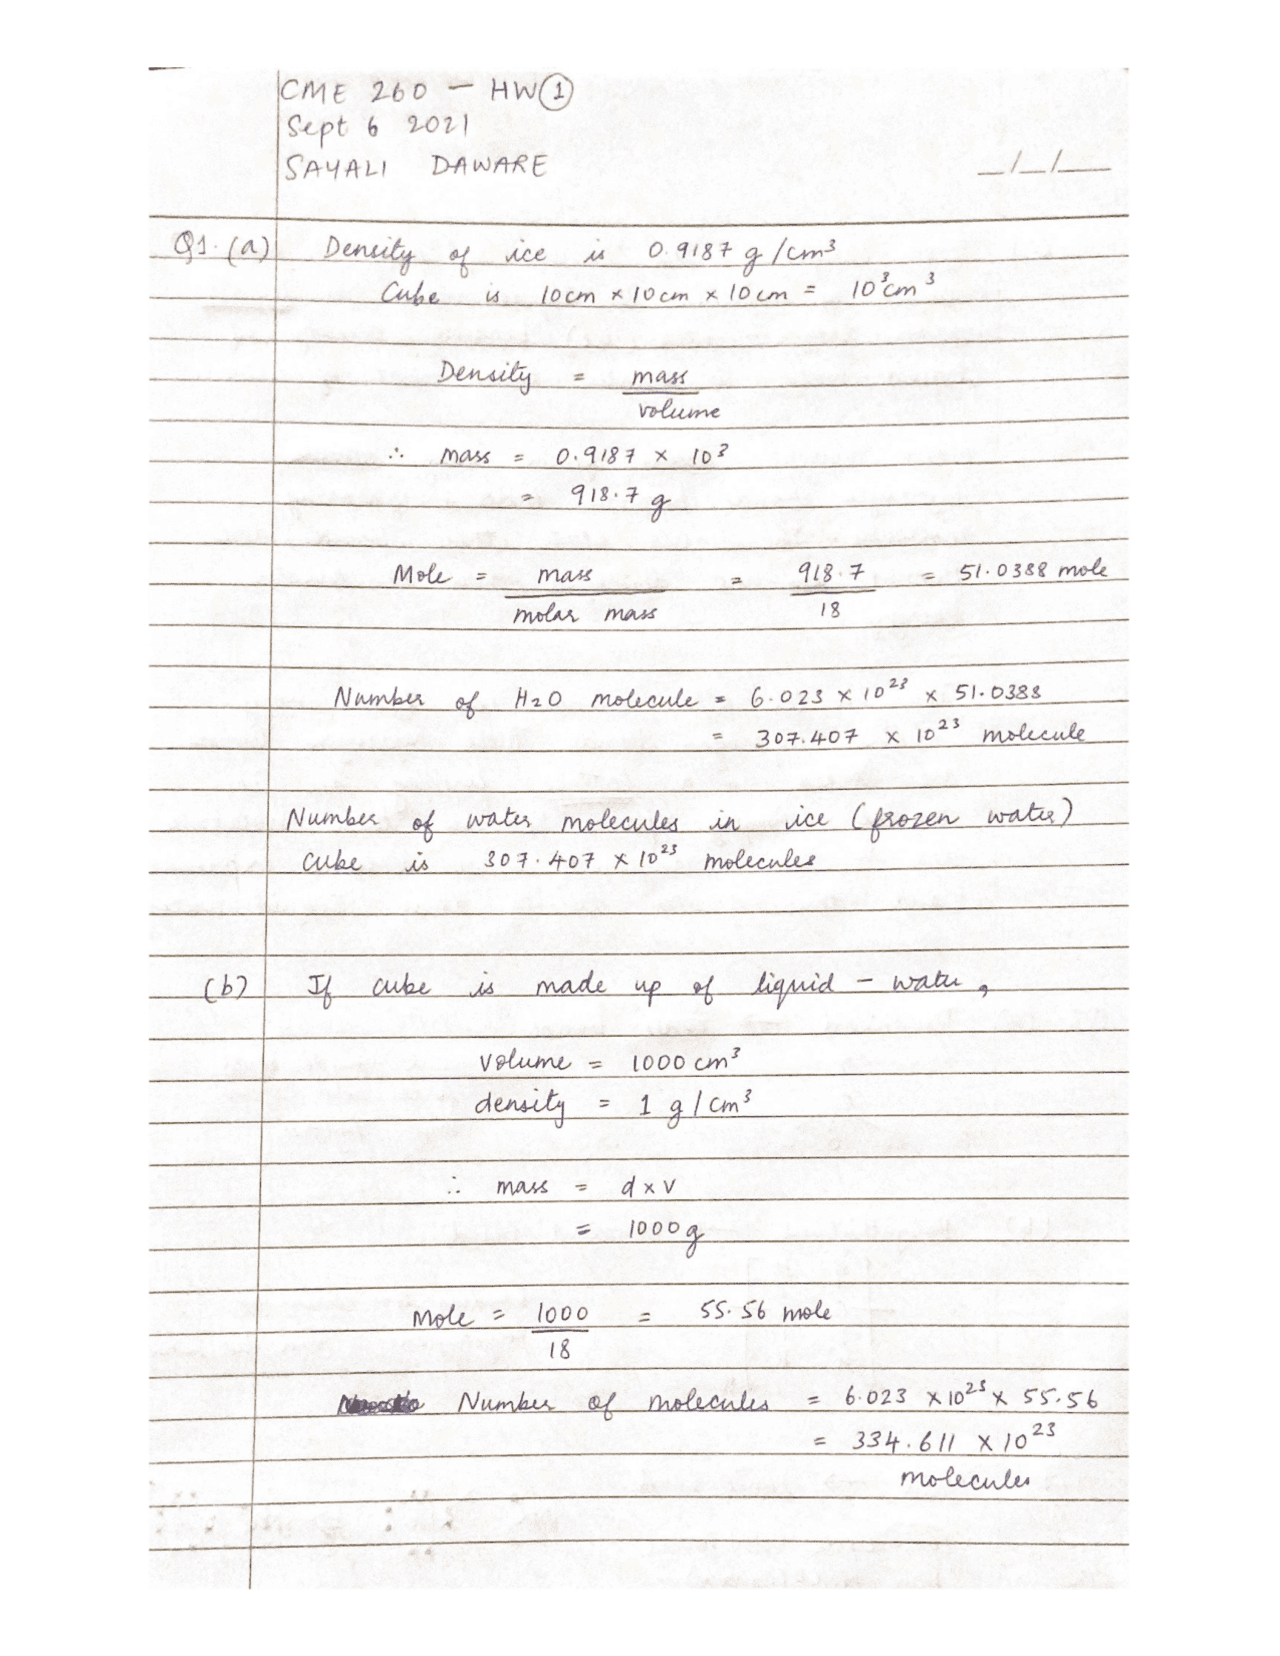 CME 260 - HW ①
Sept 6 2021
SAYALI DAWARE
_/_/__
Q1. (a) Density of ice is 0.9187 g/cm³
Cube is 10cm × 10cm × 10cm = 10³cm³
Density = mass
volume
∴ mass = 0.9187 × 10³
= 918.7 g
Mole = mass = 918.7 = 51.0388 mole
molar mass 18
Number of H2O molecule = 6.023 × 10²³ × 51.0388
= 307.407 × 10²³ molecule
Number of water molecules in ice (frozen water)
cube is 307.407 × 10²³ molecules
(b) If cube is made up of liquid - water,
volume = 1000 cm³
density = 1 g/cm³
∴ mass = d×v
= 1000g
Mole = 1000 = 55.56 mole
18
Number of molecules = 6.023 × 10²³ × 55.56
= 334.611 × 10²³
molecules